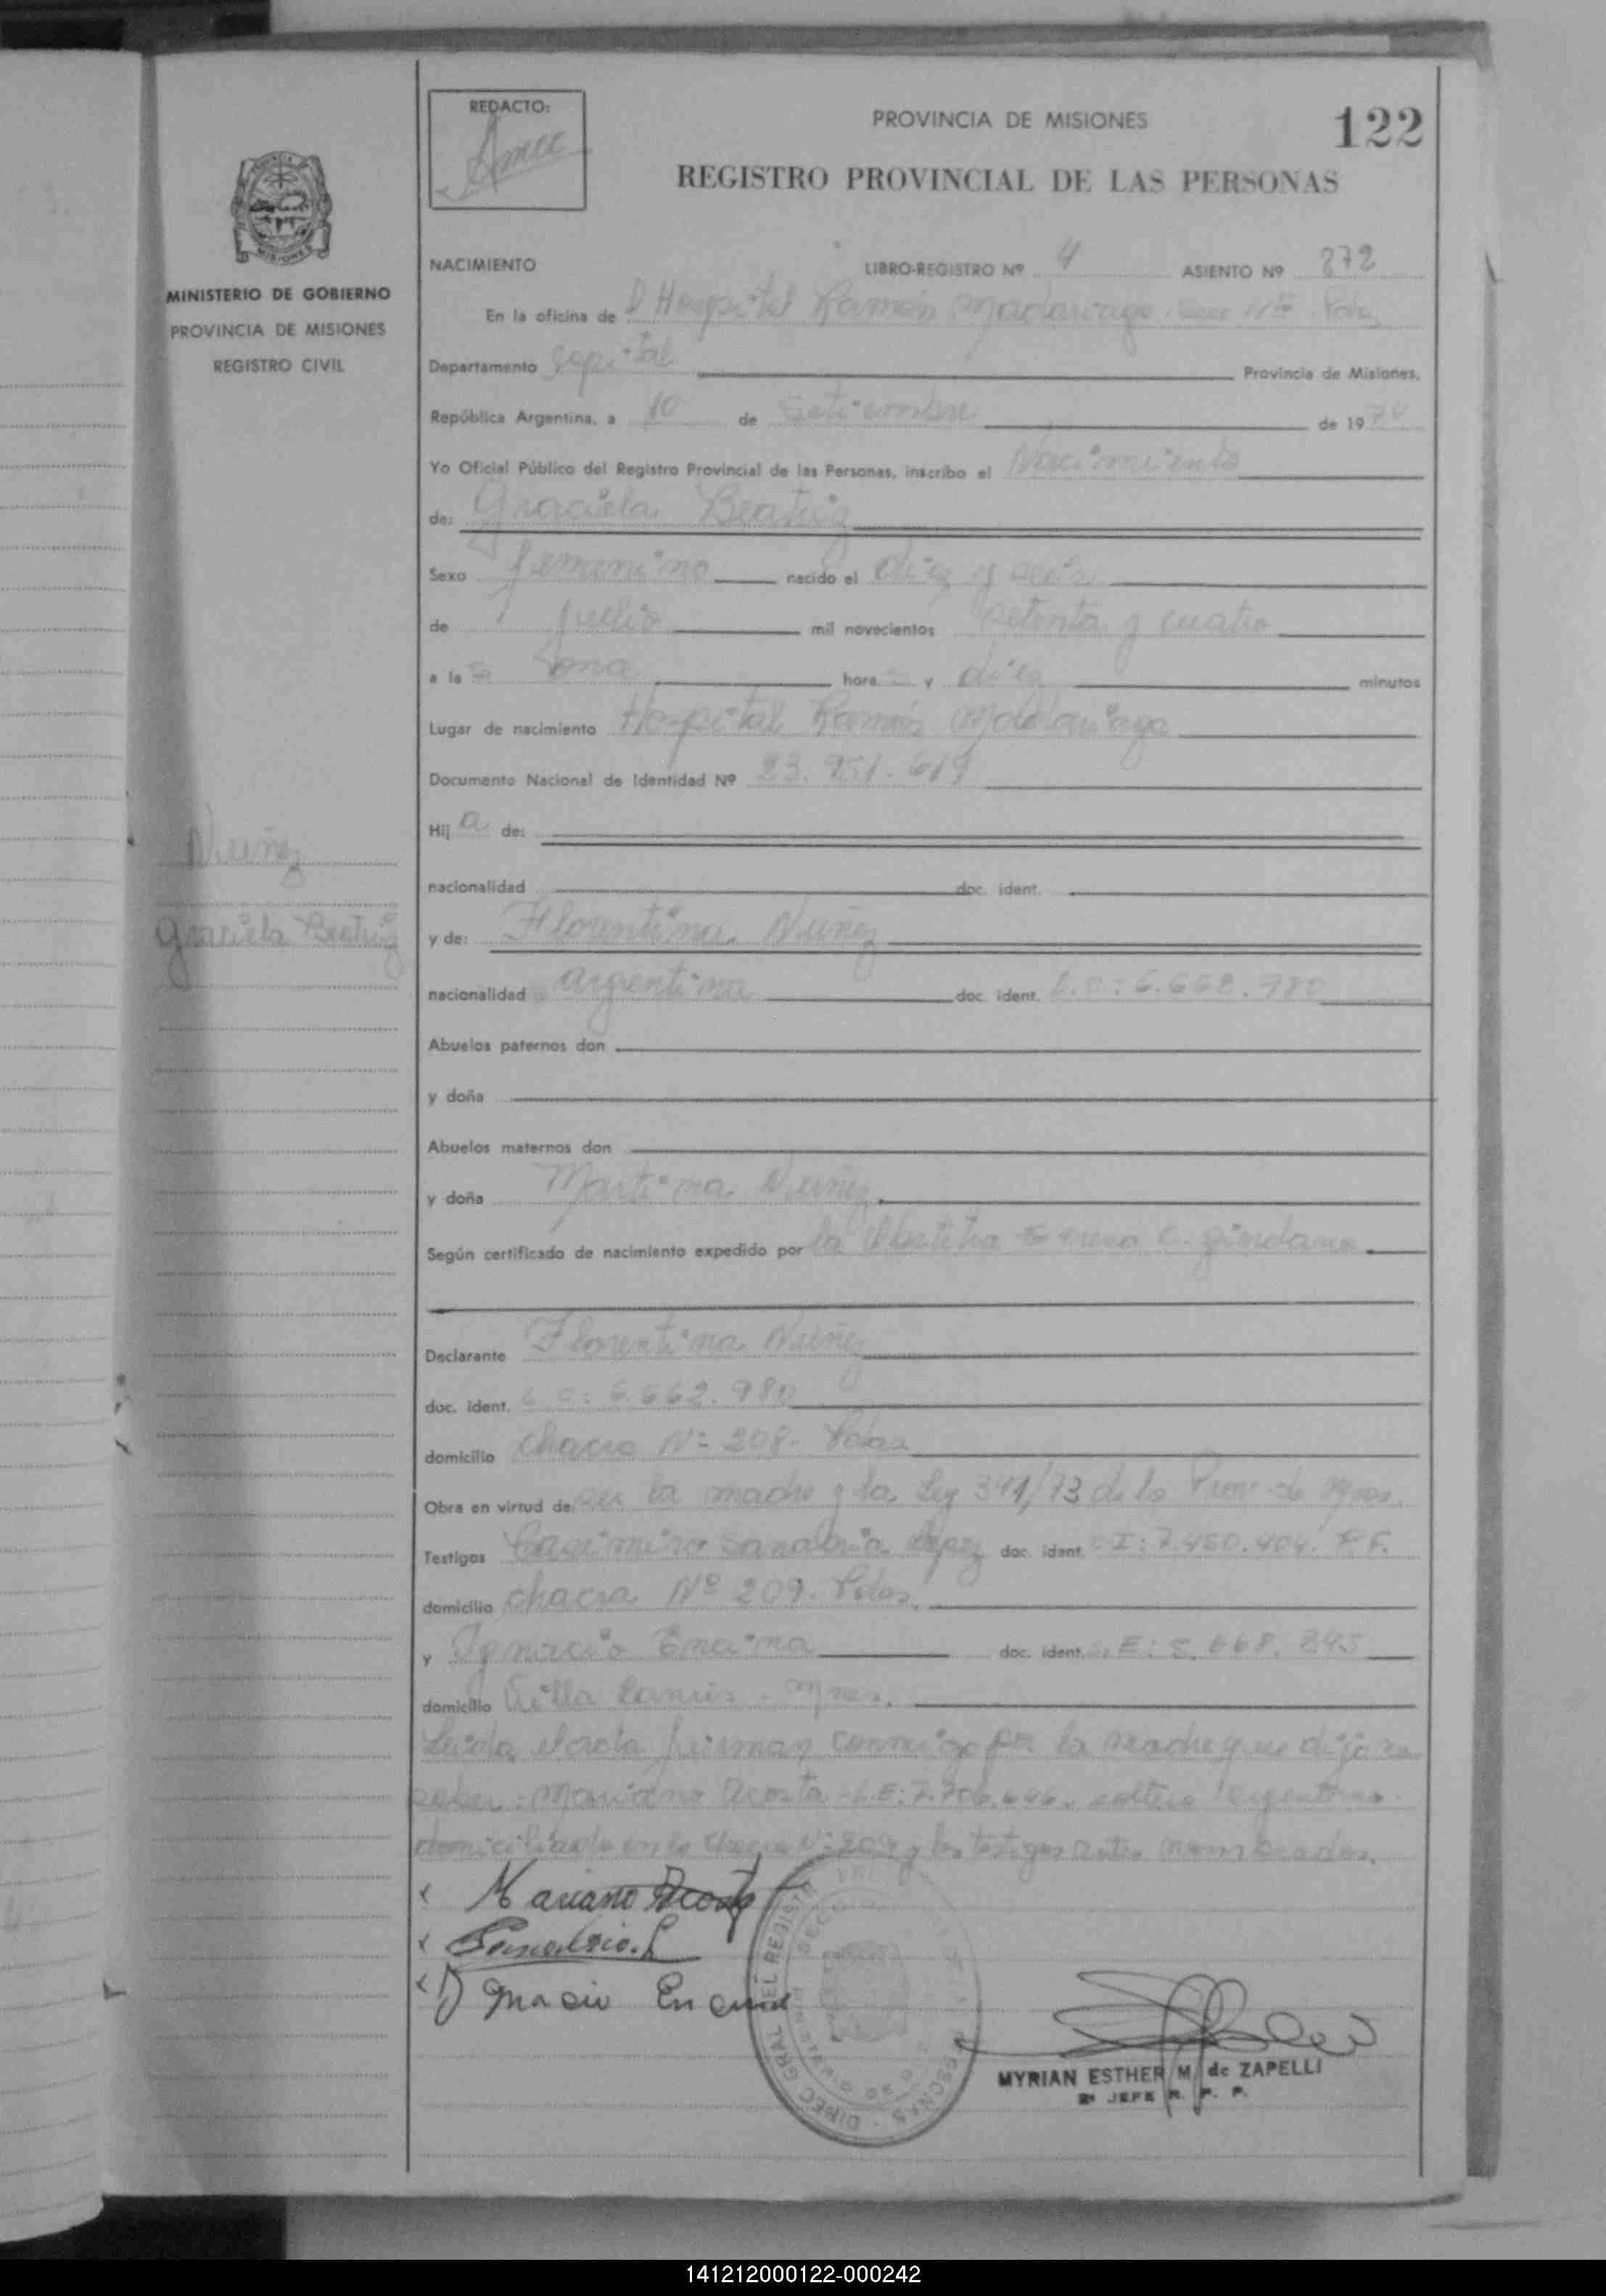 REDACTO:
PROVINCIA DE MISIONES
122
REGISTRO PROVINCIAL DE LAS PERSONAS
MINISTERIO DE GOBIERNO
PROVINCIA DE MISIONES
REGISTRO CIVIL
NACIMIENTO LIBRO-REGISTRO Nº 4 ASIENTO Nº 872
En la oficina de l Hospital Ramón Madariaga
Departamento Capital Provincia de Misiones,
República Argentina, a 10 de Setiembre de 1974
Yo Oficial Público del Registro Provincial de las Personas, inscribo el Nacimiento
de: Graciela Beatriz
Sexo femenino nacido el diez y seis
de Julio mil novecientos setenta y cuatro
a la s hora s y diez minutos
Lugar de nacimiento Hospital Ramón Madariaga
Documento Nacional de Identidad Nº 23.951.619
Hij a de:
nacionalidad doc. ident.
Nuñez
Graciela Beatriz
y de: Florentina Nuñez
nacionalidad argentina doc. ident. L.C: 6.662.980
Abuelos paternos don
y doña
Abuelos maternos don
y doña Martina Nuñez
Según certificado de nacimiento expedido por la Obstetra C. Giordano
Declarante Florentina Nuñez
doc. ident. L C: 6.662.980
domicilio Chacra Nº 208. Pdas
Obra en virtud de ser la madre y la Ley 341/73 de la Prov. de Mnes.
Testigos Casimiro Sanabria López doc. ident. C I: 7.450.404. P.F.
domicilio Chacra Nº 209. Pdas.
y Ignacio Encina doc. ident. L.E: 5.668.845
domicilio Villa Lanús - Mnes.
Leida el acta firman conmigo por la madre que dijo no
saber: Mariano Acosta L.E: 7.706.646. soltero argentino
domiciliado en la Chacra Nº 209 y los testigos antes nombrados.
x Mariano Acosta
x Sanabria. L
x Ignacio Encina
DIREC GRAL DEL REGISTR
MYRIAN ESTHER M. de ZAPELLI
JEFE R. P. P.
141212000122-000242